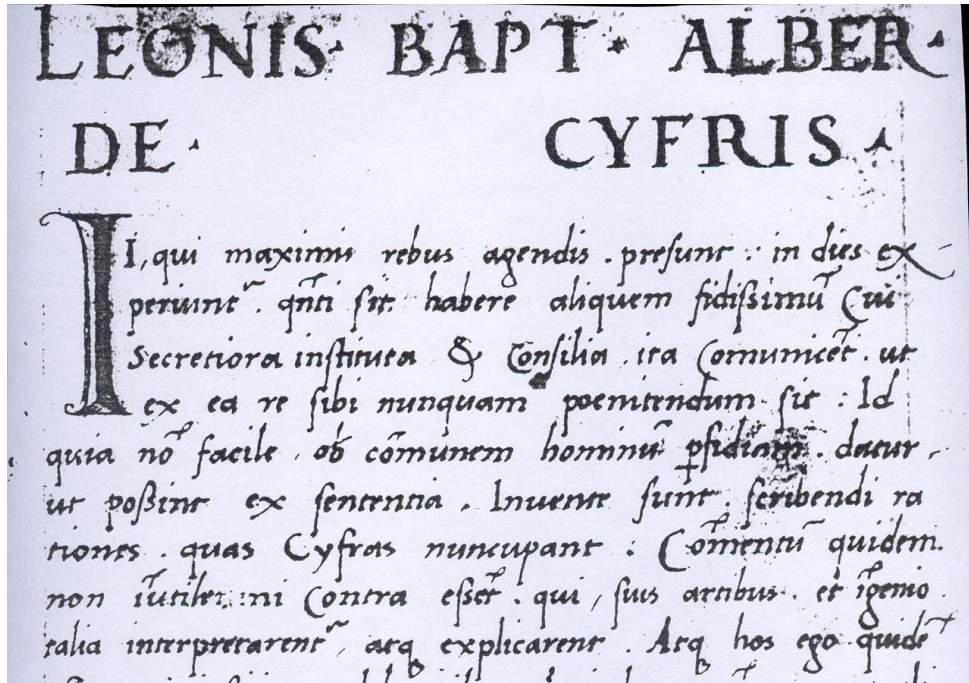 LEONIS · BAPT · ALBER ·
DE · CYFRIS ·
II, qui maximis rebus agendis . presunt : in dies ex-
periunt᷑ . qn̄ti sit habere aliquem fidissimū Cui
Secretiora instituta & Consilia ita Comunicēt . ut
ex ea re sibi nunquam poenitendum sit : Id
quia nō facile ob cōmunem hominū ꝑfidiam . datur ,
ut possint ex sententia . Inuente sunt scribendi ra
tiones . quas Cyfras nuncupant : Cōmentū quidem
non īutile: ni Contra essēt . qui , suis artibus . et īgenio
talia interpretarent᷑ , atq explicarent . Atq hos ego quidē